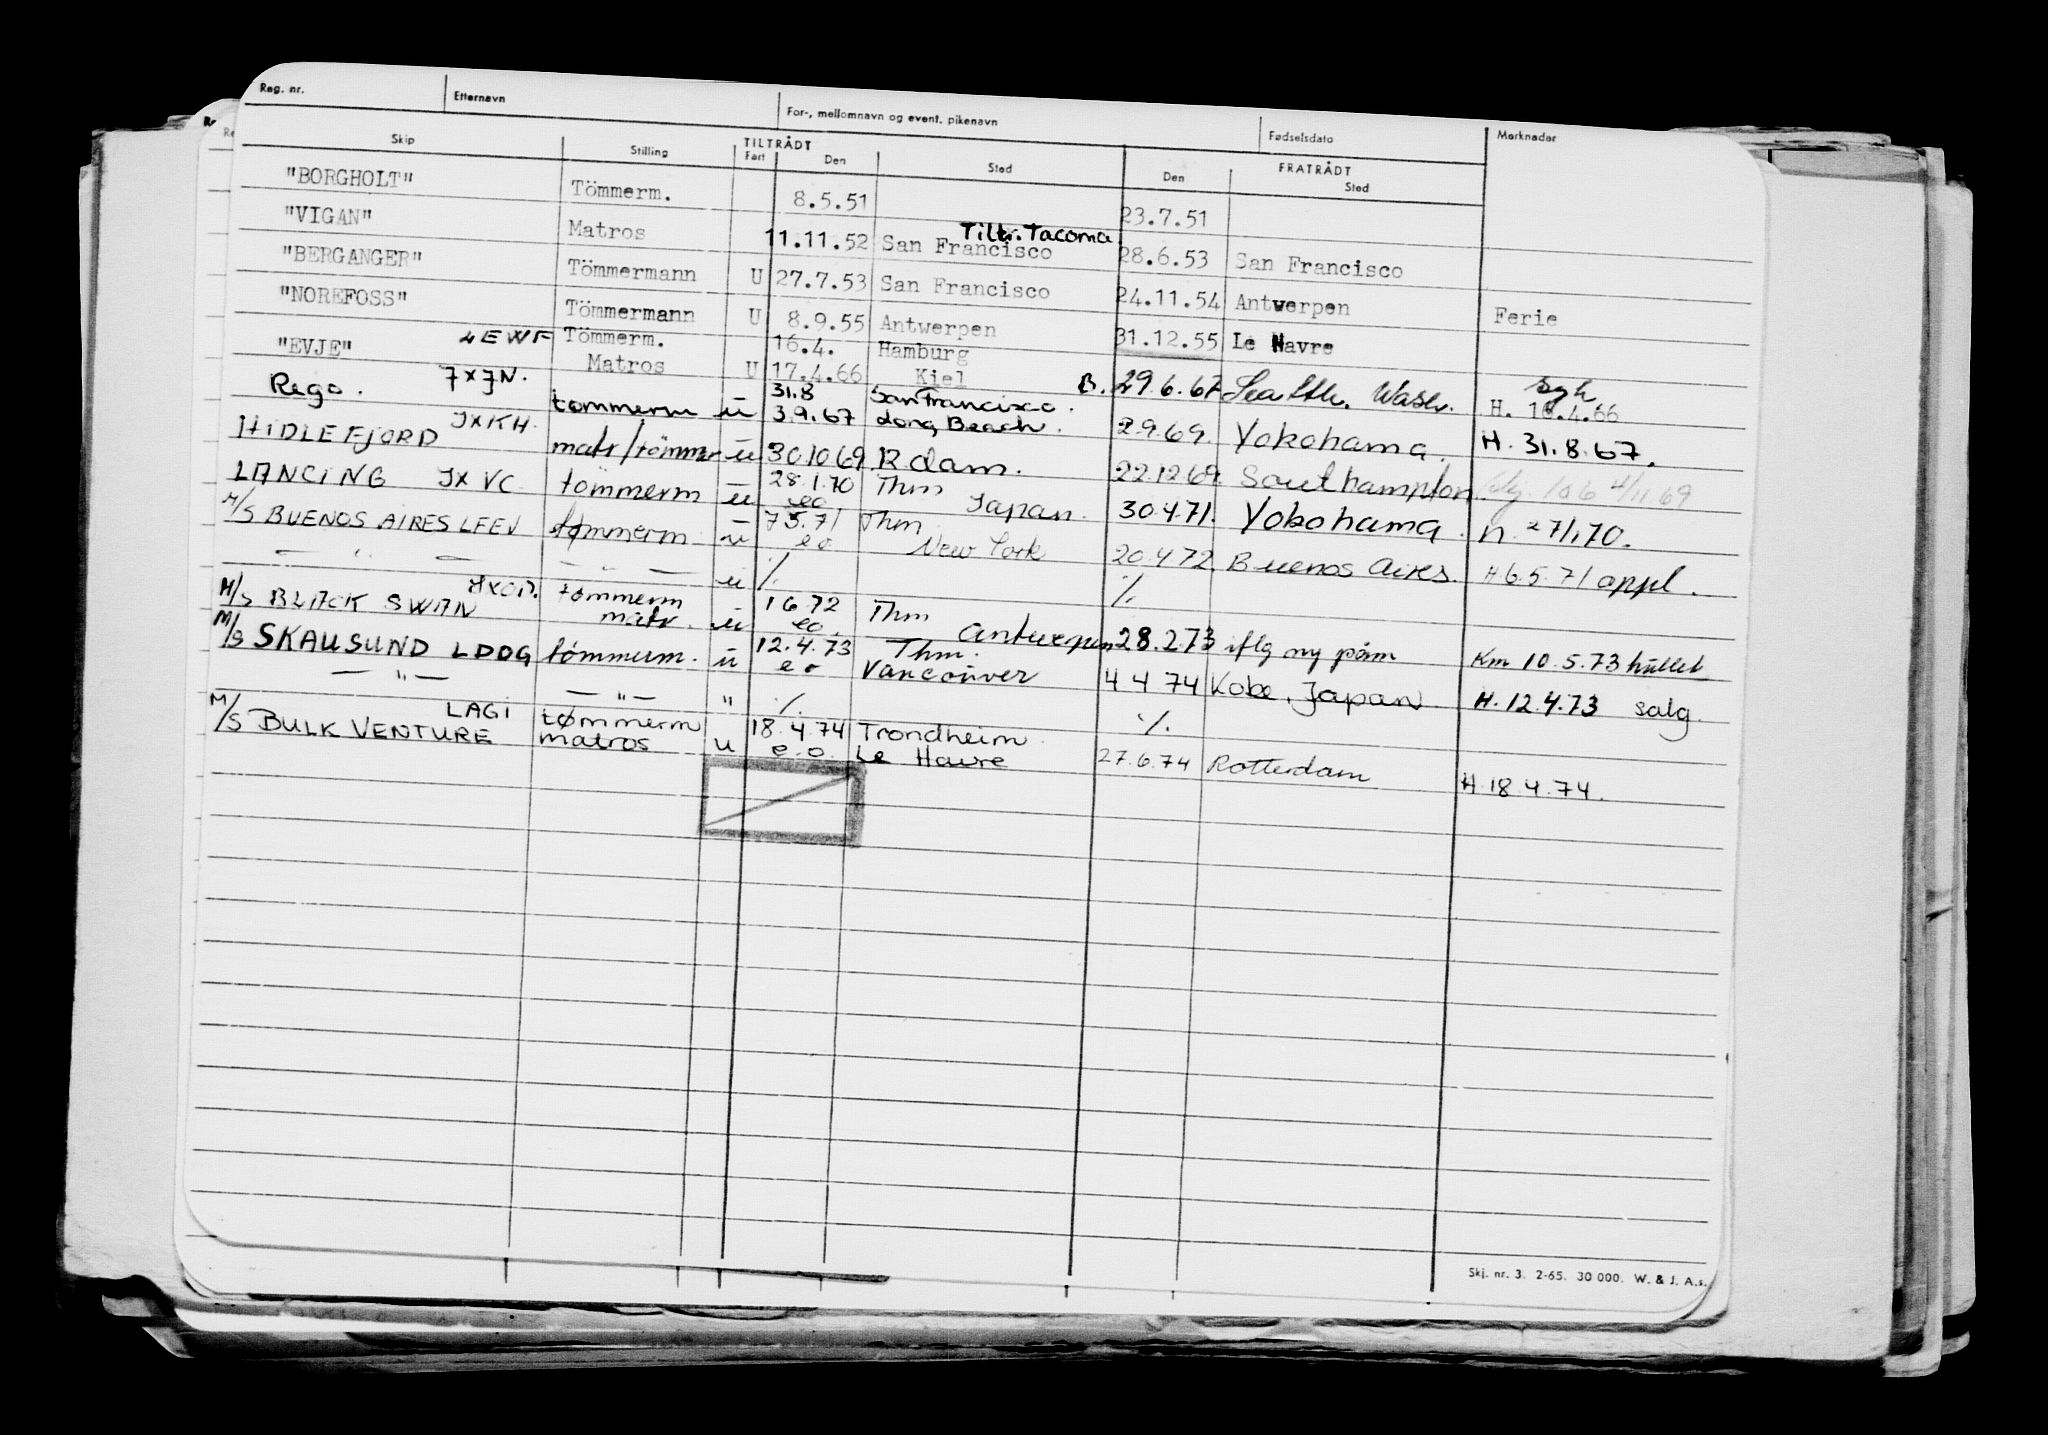 Reg. nr. Etternavn For-, mellomnavn og event. pikenavn Fødselsdato Merknader
Skip Stilling TILTRÅDT Fart Den Sted FRATRÅDT Den Sted
"BORGHOLT" Tömmerm. 8.5.51 23.7.51
"VIGAN" Matros 11.11.52 San Francisco Tiltr. Tacoma. 28.6.53 San Francisco
"BERGANGER" Tömmermann U 27.7.53 San Francisco 24.11.54 Antwerpen Ferie
"NOREFOSS" Tömmermann U 8.9.55 Antwerpen 31.12.55 Le Havre
"EVJE" LEWF Tömmerm. 16.4. Hamburg
Matros U 17.4.66 Kiel B. 29.6.67 Seattle. Wash. H. 16.4.66
Rego. JXJN. tömmerm u 31.8 San Francisco.
3.9.67 Long Beach. 2.9.69. Yokohama. H. 31.8.67.
HIDLEFJORD JXKH. matr/tömmer u 30.10.69 R dam. 22.12.69. Southampton 4/11 69
LANCING JXVC tömmerm u 28.1.70 Thm
eo Japan. 30.4.71. Yokohama. H. 27/1 70.
M/S BUENOS AIRES LEEV tømmerm u 7.5.71 Thm
eo New York 20.4.72 Buenos Aires. H 6.5.71 appl.
— " — — " — u % %
M/S BLACK SWAN JXOD. tømmerm 1 6 72 Thm
matr. u eo Antwerpen 28.2.73 iflg ny påm Km 10.5.73
M/S SKAUSUND LDOG tömmerm. u 12.4.73 Thm.
eo Vancouver 4 4 74 Kobe, Japan H. 12.4.73 salg.
— " — — " — " % %
M/S BULK VENTURE LAGI tømmerm 18.4.74 Trondheim
matros u e.o. Le Havre 27.6.74 Rotterdam H. 18.4.74.
Skj. nr. 3. 2-65. 30 000. W. & J. A.s.